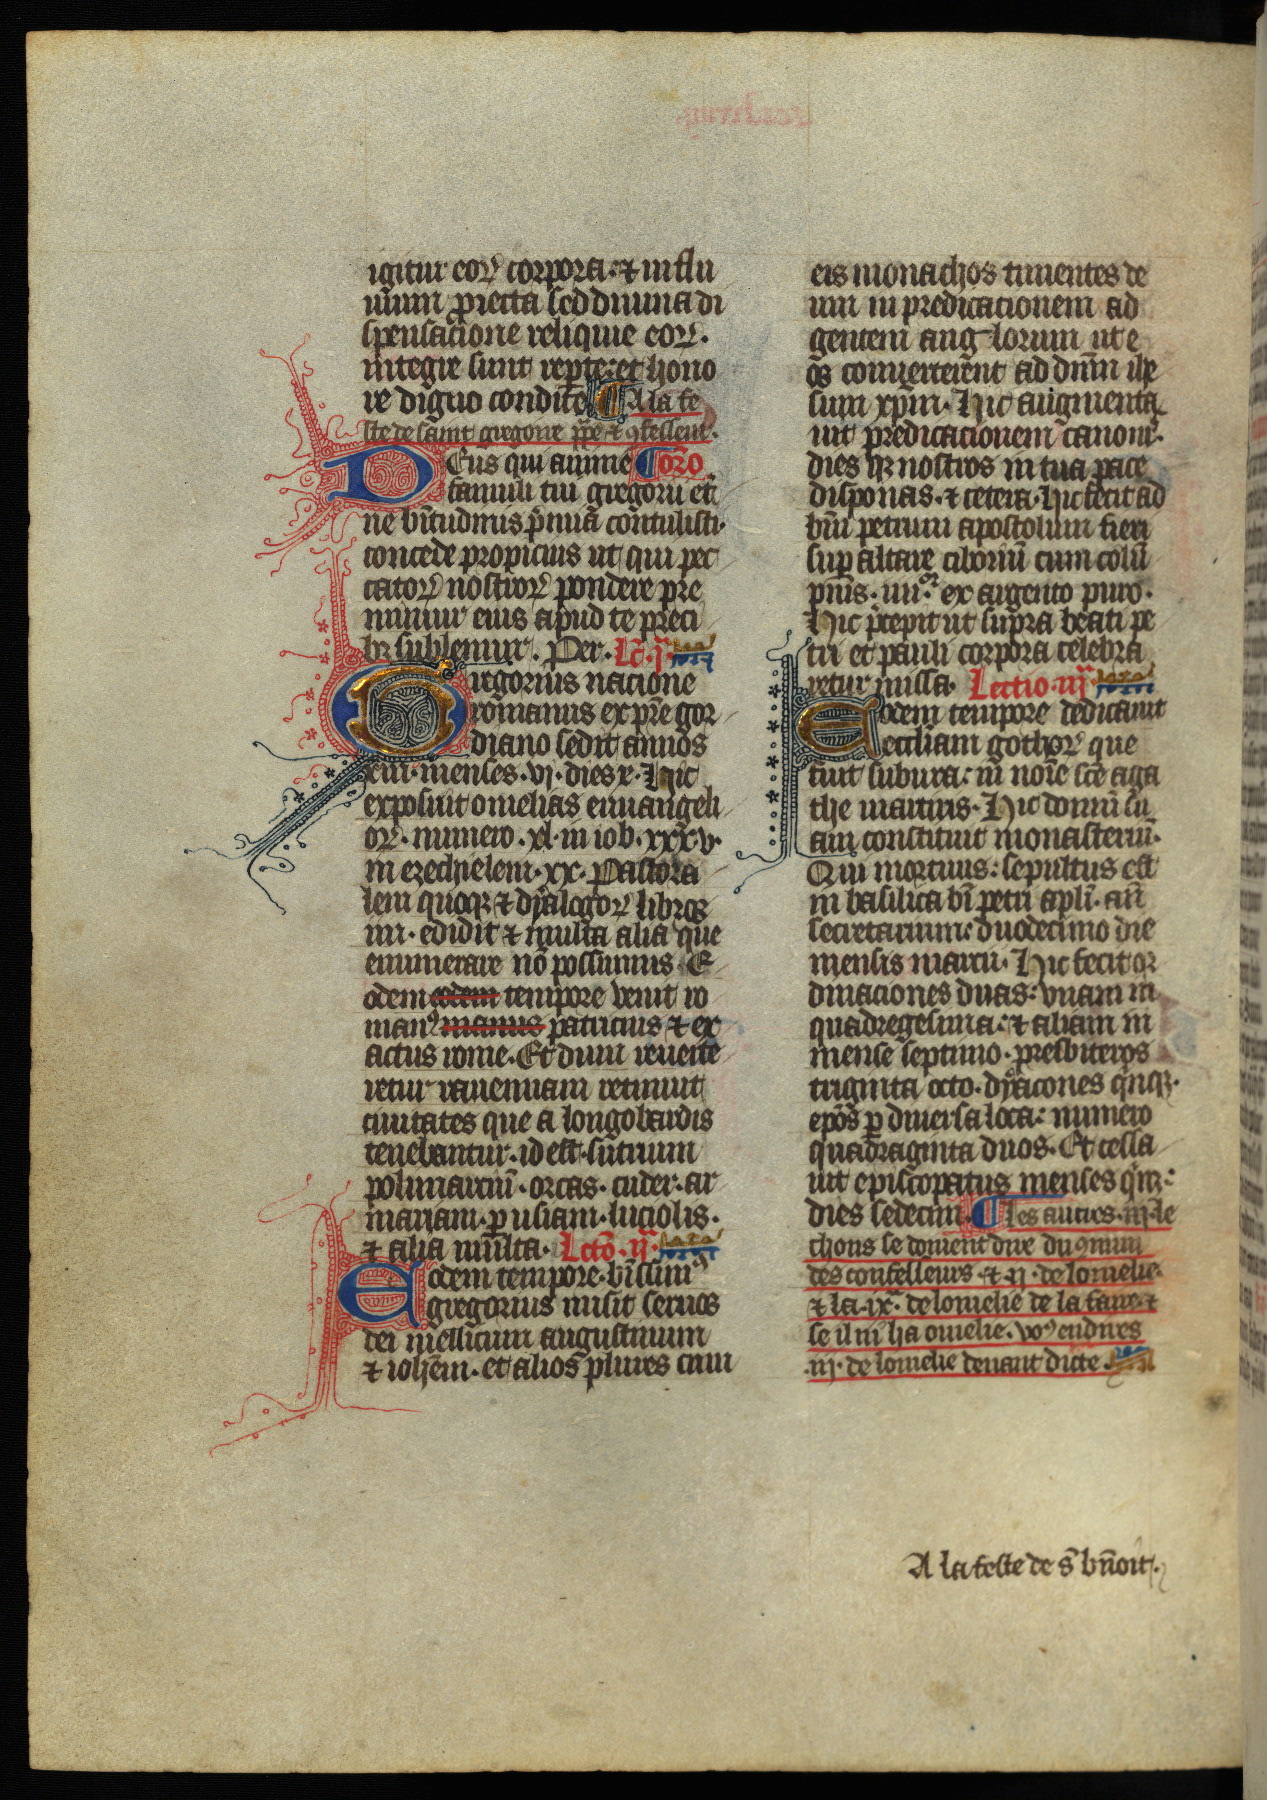 igitur eoꝝ corpora · ⁊ in flu
uium proiecta sed diuina di
spensacione reliquie eoꝝ ·
integre sunt repte · et hono
re digno condite A la fe
ste de saint gregoire ppe ⁊ ꝯfesseur ·
Deus qui anime Oro
famuli tui gregorii et̃
ne bt̃itudinis p̃mia contulisti ·
concede propicius ut qui pec
catoꝝ nostroꝝ pondere pre
mimur eius apud te preci
bꝫ subleuiur · Per · Lc̃ · j ·
Gregorius nacione
romanus ex pr̃e gor
diano sedit annos
xiii · menses · vj · dies x · Hic
exposuit omelias euuangeli
oꝝ · numero · xl · in iob · xxxv ·
in ezechielem · xx · Pastora
lem quoqꝫ ⁊ dyalogoꝝ libros
iiii · edidit ⁊ multa alia que
enumerare nõ possumus · E
odem eodem tempore venit ro
manꝰ manus patricius ⁊ ex
actus rome · Et dum reuerte
retur rauennam retinuit
ciuitates que a longobardis
tenebantur · id est · sutrium
polimarciũ · ortas · tuder · at
mariam · ꝑusiam · luciolis ·
⁊ alia multa · Lctõ · ij ·
Eodem tempore · bt̃issimꝰ
gregorius misit seruos
dei mellitum augustinum
⁊ ioh̃em · et alios plures cum
eis monachos timentes de
um in predicationem ad
gentem ang lorum ut e
os conuerterent ad dnm̃ ihe
sum xpm̃ · Hic augmenta
uit predicationem canonis ·
dies qꝫ nostros in tua pace
disponas · ⁊ cetera · hic fecit ad
bm̃ petrum apostolum fieri
suꝑ altare ciboriũ cum colũ
pnis · iiiiᵒʳ ex argento puro ·
Hic p̃cepit ut supra beati pe
tri et pauli corpora celebra
retur missa · Lectio · iij ·
Eodem tempore dedicauit
ecclesiam gothoꝝ que
fuit subura : in noĩe sce aga
the martiris · Hic domũ su
am constituit monasteriũ ·
Qui mortuus : sepultus est
in basilica bi petri apli · añ
secretarium : duodecimo die
mensis marcii · Hic fecit or
dinaciones duas : vnam in
quadragesima : ⁊ aliam in
mense septimo · presbiteros
triginta octo · dyacones qnqꝫ ·
epos ꝑ diuersa loca : numero
quadraginta duos · Et cessa
uit episcopatus menses qnqꝫ :
dies sedecim · Les autres · iij · le
chons se doiuent dire du ꝯmun
des confesseurs ⁊ ij · de lomelie ·
⁊ la · ixᵉ · de lomelie de la faue · ⁊
se il ni ha omelie · voꝰ en dires
· iij · de lomelie deuant dicte
A la feste de s̃ bñoit ·